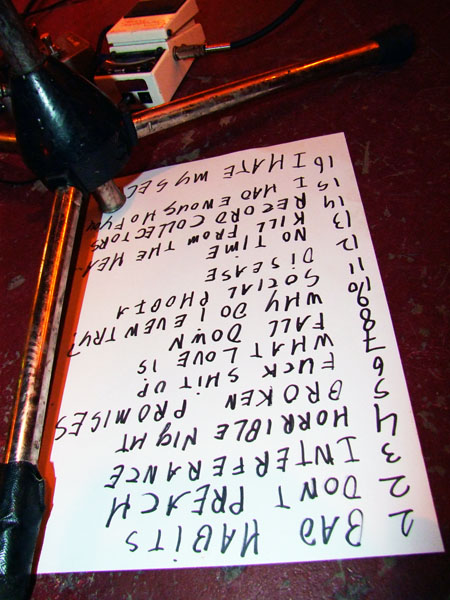 1 BAD HABITS
2 DONT PREACH
3 INTERFERANCE
4 HORRIBLE NIGHT
5 BROKEN PROMISES
6 FUCK SHIT UP
7 WHAT LOVE IS
8 FALL DOWN
9 WHY DO I EVEN TRY?
10 SOCIAL PHOBIA
11 DISEASE
12 NO TIME
13 KILL FROM THE HEA
14 RECORD COLLECTORS
15 I HAD ENOUGH OF YOU
16 I HATE MY SEC